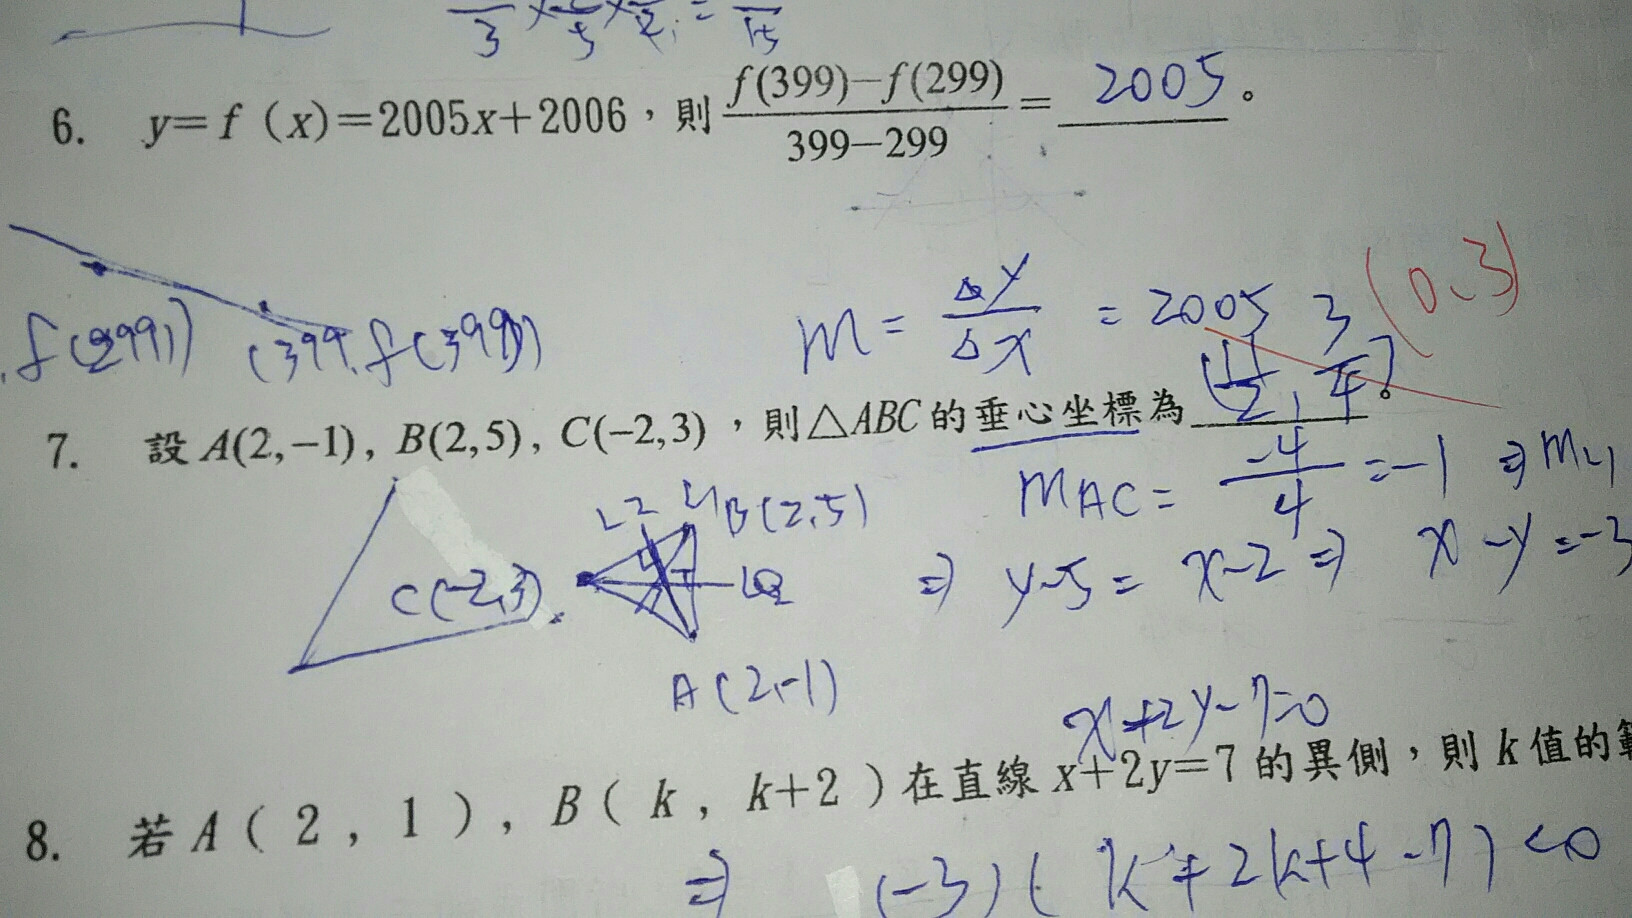 3 × 5 × 2 = 15
6. y=f (x)=2005x+2006,則 f(399)−f(299) / 399−299 = 2005。
f(299)) (399, f(399))
m = Δy/Δx = 2005
(0,3)
7. 設 A(2,−1), B(2,5), C(−2,3),則△ABC的垂心坐標為
mAC = -4/4 = -1 ⇒ m
L2 L1 B(2,5)
C(-2,3)
⇒ y-5 = x-2 ⇒ x-y=-3
A(2,-1)
x+2y-7=0
8. 若 A( 2 , 1 ), B( k , k+2 )在直線 x+2y=7的異側,則 k 值的
⇒ (-3)( k+2k+4-7) <0